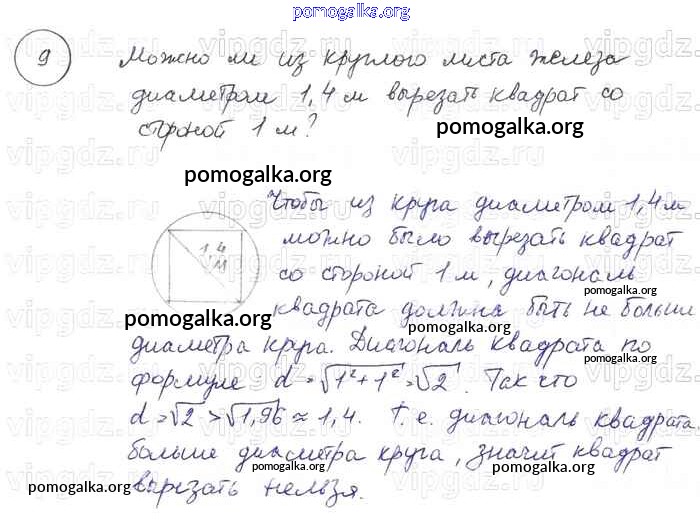 pomogalka.org
9 Можно ли из круглого листа железа
диаметром 1,4 м вырезать квадрат со
стороной 1 м?
pomogalka.org
pomogalka.org
Чтобы из круга диаметром 1,4 м
можно было вырезать квадрат
1,4
м
со стороной 1 м, диагональ
pomogalka.org
квадрата должна быть не больше
pomogalka.org
pomogalka.org
диаметра круга. Диагональ квадрата по
формуле d = √1²+1² = √2. Так что
pomogalka.org
d = √2 > √1,96 ≈ 1,4. Т.е. диагональ квадрата
pomogalka.org
больше диаметра круга, значит квадрат
pomogalka.org
pomogalka.org
вырезать нельзя.
vipgdz.ru